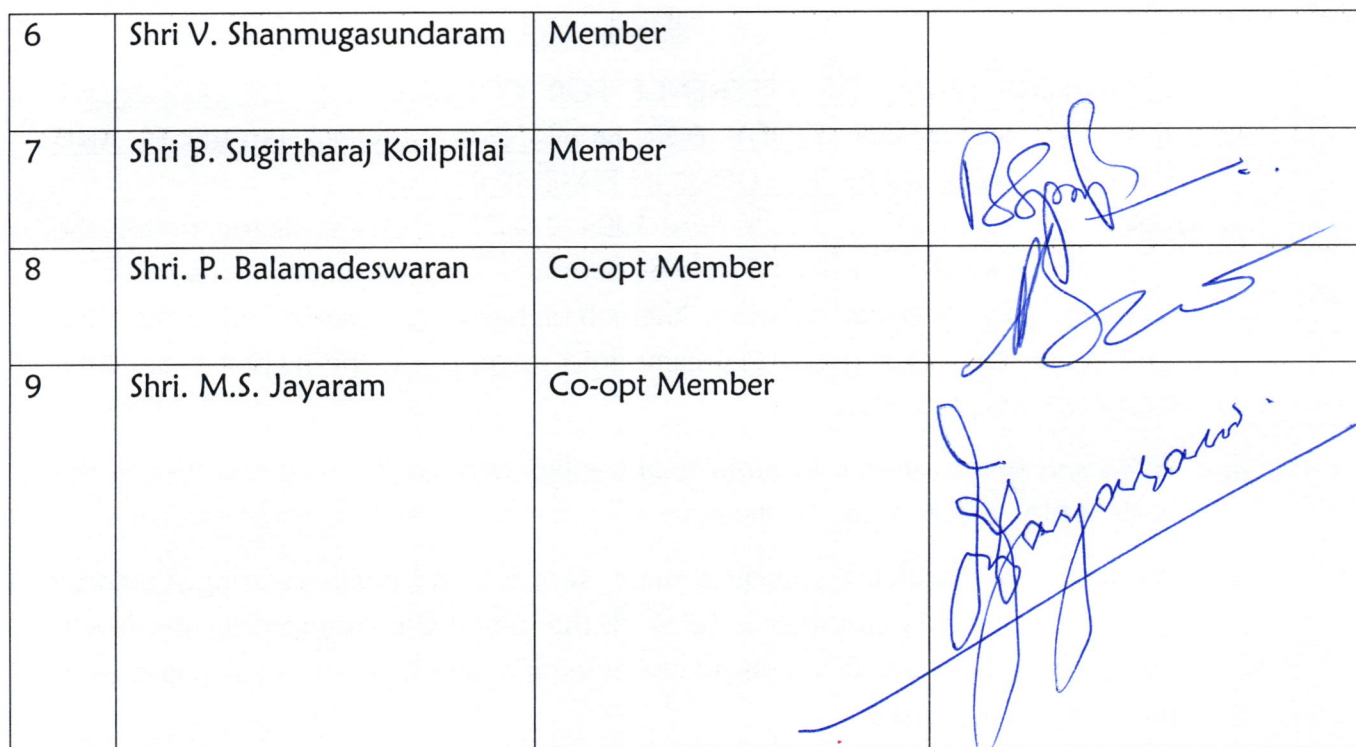 6 Shri V. Shanmugasundaram Member
7 Shri B. Sugirtharaj Koilpillai Member
8 Shri. P. Balamadeswaran Co-opt Member
9 Shri. M.S. Jayaram Co-opt Member